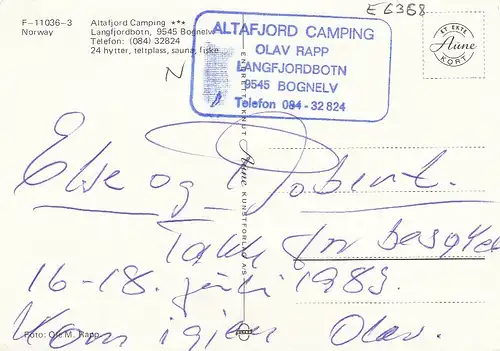 F-11036-3
Norway
Altafjord Camping ***
Langfjordbotn, 9545 Bognelv
Telefon: (084) 32824
24 hytter, teltplass, sauna, fiske
E 6368
N
ALTAFJORD CAMPING
OLAV RAPP
LANGFJORDBOTN
9545 BOGNELV
Telefon 084 - 32 824
ET EKTE
Aune
KORT
ENERETT: KNUT Aune KUNSTFORLAG A/S
Else og Robert.
Takk for besøket
16-18. juli 1983.
Kom igjen Olav.
Foto: Ole M. Rapp